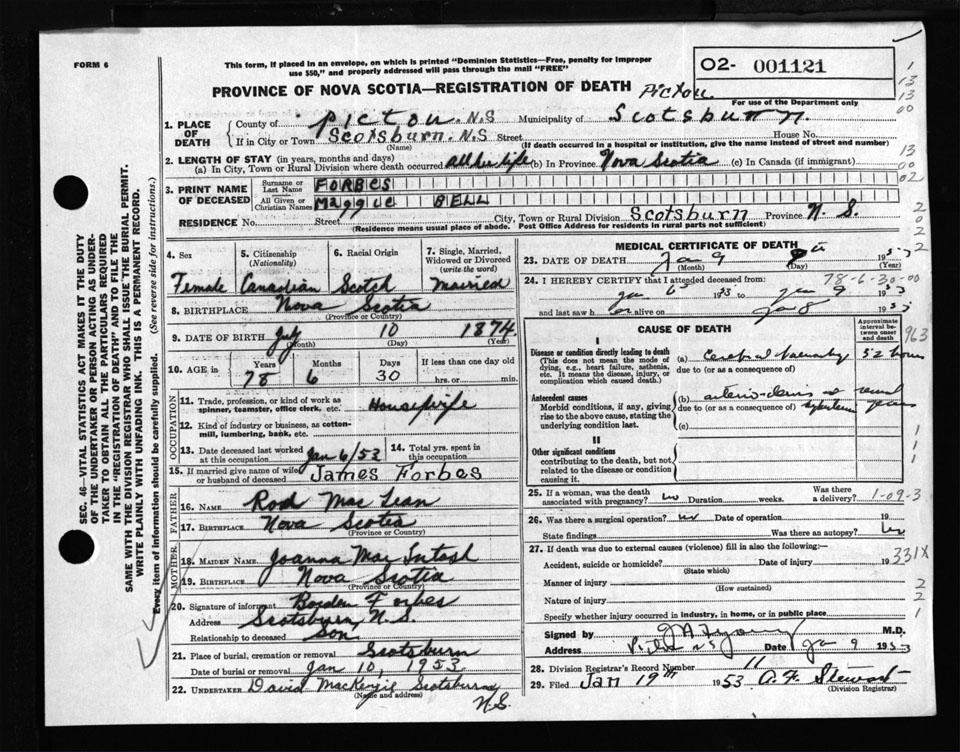 FORM 6
This form, if placed in an envelope, on which is printed "Dominion Statistics—Free, penalty for improper
use $50," and properly addressed will pass through the mail "FREE"
O2- 001121
PROVINCE OF NOVA SCOTIA—REGISTRATION OF DEATH Pictou
For use of the Department only
1. PLACE OF DEATH County of Pictou. N.S Municipality of Scotsburn.
If in City or Town Scotsburn. N.S Street House No.
(Name) (If death occurred in a hospital or institution, give the name instead of street and number)
2. LENGTH OF STAY (in years, months and days)
(a) In City, Town or Rural Division where death occurred all her life (b) In Province Nova Scotia (c) In Canada (if immigrant)
3. PRINT NAME OF DECEASED Surname or Last Name FORBES
All Given or Christian Names Maggie BELL
RESIDENCE No. Street City, Town or Rural Division Scotsburn Province N. S.
(Residence means usual place of abode. Post Office Address for residents in rural parts not sufficient)
4. Sex 5. Citizenship (Nationality) 6. Racial Origin 7. Single, Married, Widowed or Divorced (write the word)
Female Canadian Scotch Married
8. BIRTHPLACE Nova Scotia
(Province or Country)
9. DATE OF BIRTH July 10 1874
(Month) (Day) (Year)
10. AGE in Years Months Days If less than one day old
78 6 30 hrs. or min.
OCCUPATION
11. Trade, profession, or kind of work as spinner, teamster, office clerk, etc. Housewife
12. Kind of industry or business, as cotton-mill, lumbering, bank, etc.
13. Date deceased last worked at this occupation Jan 6/53 14. Total yrs. spent in this occupation
15. If married give name of wife or husband of deceased James Forbes
FATHER
16. NAME Rod MacLean
17. BIRTHPLACE Nova Scotia
(Province or Country)
MOTHER
18. MAIDEN NAME Joanna MacIntosh
19. BIRTHPLACE Nova Scotia
(Province or Country)
20. Signature of informant Borden Forbes
Address Scotsburn, N.S.
Relationship to deceased Son
21. Place of burial, cremation or removal Scotsburn
Date of burial or removal Jan 10, 1953
22. UNDERTAKER David MacKenzie Scotsburn
(Name and address) N.S.
MEDICAL CERTIFICATE OF DEATH
23. DATE OF DEATH Jan 9 th 1953
(Month) (Day) (Year)
24. I HEREBY CERTIFY that I attended deceased from: 78-6-30-00
Jan 6 1953 to Jan 9 1953
and last saw her alive on Jan 8 1953
CAUSE OF DEATH
Approximate interval between onset and death
I
Disease or condition directly leading to death
(This does not mean the mode of dying, e.g., heart failure, asthenia, etc. It means the disease, injury, or complication which caused death.)
(a) Cerebral 52 hours
due to (or as a consequence of)
Antecedent causes
Morbid conditions, if any, giving rise to the above cause, stating the underlying condition last.
(b) years
due to (or as a consequence of)
(c)
II
Other significant conditions
contributing to the death, but not related to the disease or condition causing it.
25. If a woman, was the death associated with pregnancy? no Duration weeks. Was there a delivery? 1-09-3
26. Was there a surgical operation? no Date of operation 19
State findings Was there an autopsy? no
27. If death was due to external causes (violence) fill in also the following:—
Accident, suicide or homicide? Date of injury 19 331X
(State which)
Manner of injury
(How sustained)
Nature of injury
Specify whether injury occurred in industry, in home, or in public place
Signed by M.D.
Address Date Jan 9 1953
28. Division Registrar's Record Number 11
29. Filed Jan 19th 1953 A. F. Stewart
(Division Registrar)
SEC. 46—VITAL STATISTICS ACT MAKES IT THE DUTY
OF THE UNDERTAKER OR PERSON ACTING AS UNDER-
TAKER TO OBTAIN ALL THE PARTICULARS REQUIRED
IN THE "REGISTRATION OF DEATH" AND TO FILE THE
SAME WITH THE DIVISION REGISTRAR WHO SHALL ISSUE THE BURIAL PERMIT.
WRITE PLAINLY WITH UNFADING INK. THIS IS A PERMANENT RECORD.
Every item of information should be carefully supplied. (See reverse side for instructions.)
1
13
13
00
13
02
2
0
2
2
963
1
1
1
2
2
1